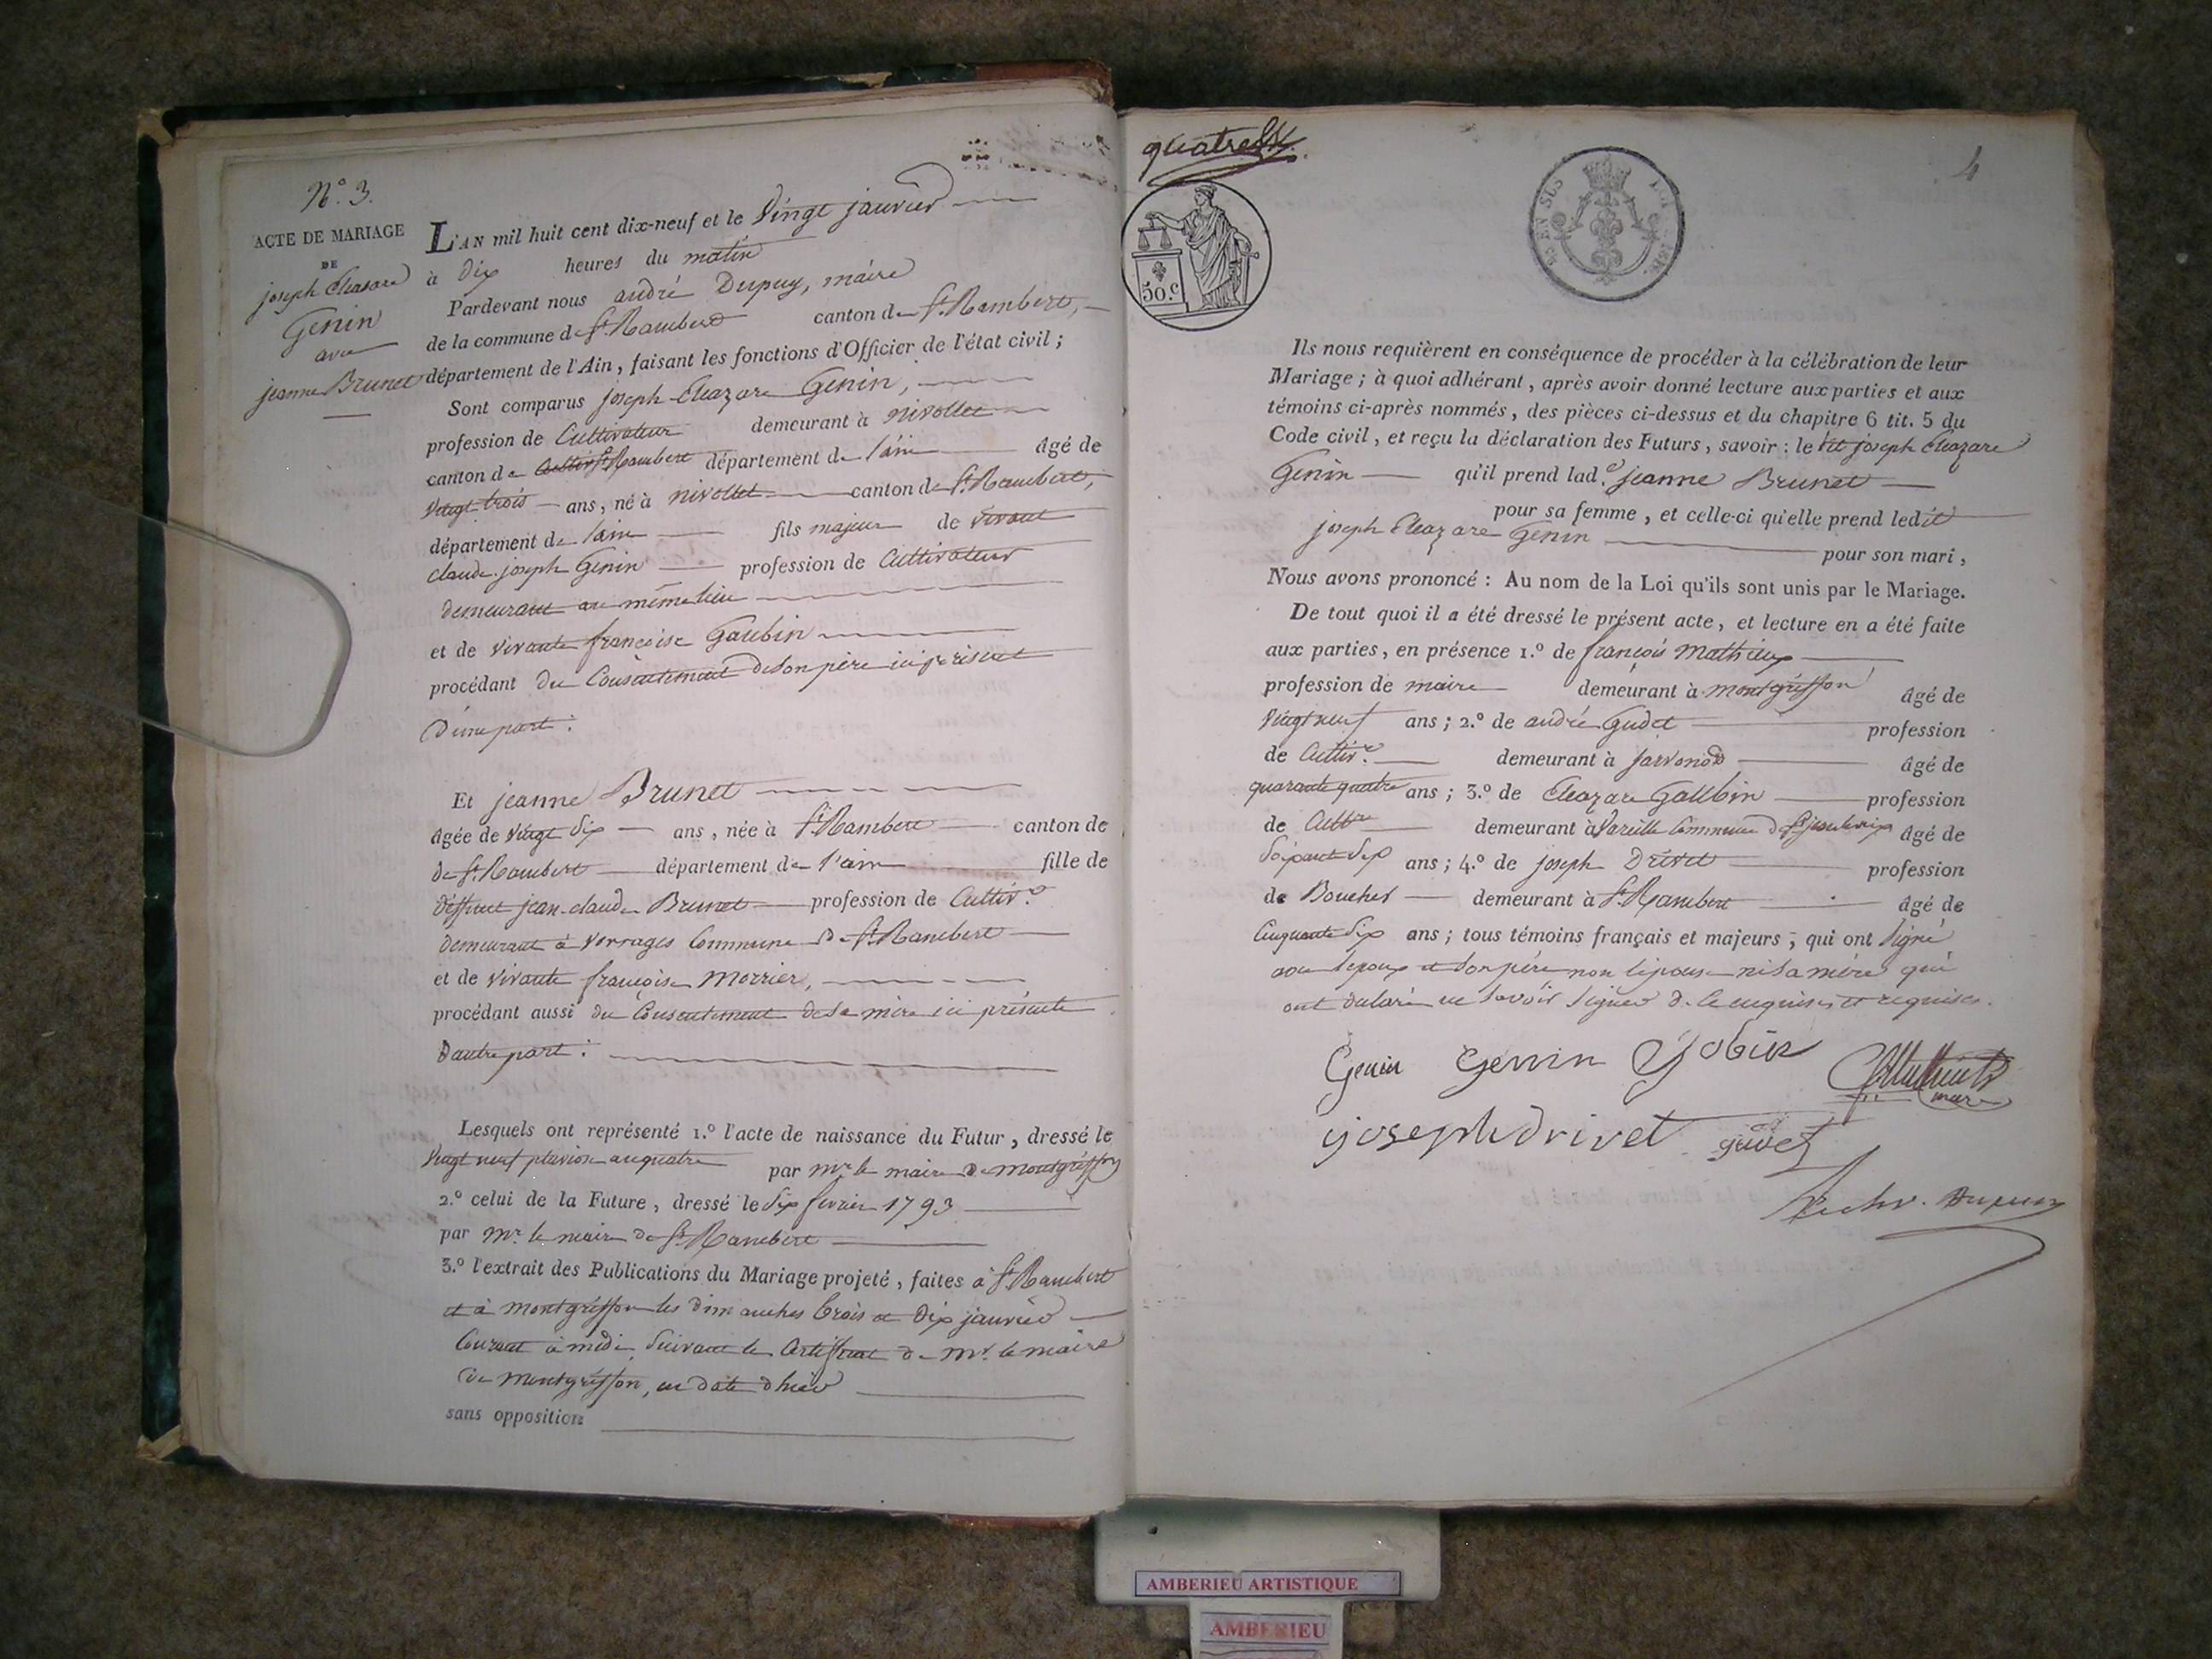 N.º 3.
ACTE DE MARIAGE
DE
joseph Eleazare
Genin
avec
jeanne Brunet
L'AN mil huit cent dix-neuf et le Vingt janvier
à dix heures du matin
Pardevant nous andré Dupuy, maire
de la commune de St. Rambert canton de St. Rambert,
département de l'Ain, faisant les fonctions d'Officier de l'état civil ;
Sont comparus joseph Eleazare Genin,
profession de Cultivateur demeurant à nivollet
canton de St. Rambert département de l'ain âgé de
Vingt trois ans, né à nivollet canton de St. Rambert,
département de l'ain fils majeur de vivant
claude joseph Genin profession de Cultivateur
demeurant au même lieu
et de vivante françoise Gaubin
procédant du Consentement de son père ici présent
D'une part :
Et jeanne Brunet
âgée de vingt six ans, née à St. Rambert canton de
de St. Rambert département de l'ain fille de
deffunt jean-claude Brunet profession de Cultivr.
demeurant à Vorrages Commune de St. Rambert
et de vivante françoise Morrier,
procédant aussi du Consentement de sa mère ici présente
D'autre part :
Lesquels ont représenté 1.º l'acte de naissance du Futur, dressé le
Vingt neuf pluviose an quatre par mr. le maire de montgriffon
2.º celui de la Future, dressé le six fevrier 1793
par mr. le maire de St. Rambert
3.º l'extrait des Publications du Mariage projeté, faites à St. Rambert
et à montgriffon les dimanches trois et dix janvier
Courant à midi, suivant le Certifficat de mr. le maire
de montgriffon, en date d'hier
sans opposition
quatre
4
50.c
Ils nous requièrent en conséquence de procéder à la célébration de leur
Mariage ; à quoi adhérant, après avoir donné lecture aux parties et aux
témoins ci-après nommés, des pièces ci-dessus et du chapitre 6 tit. 5 du
Code civil, et reçu la déclaration des Futurs, savoir : le dit joseph Eleazare
Genin qu'il prend lad.e jeanne Brunet
pour sa femme, et celle-ci qu'elle prend ledit
joseph Eleazare Genin pour son mari,
Nous avons prononcé : Au nom de la Loi qu'ils sont unis par le Mariage.
De tout quoi il a été dressé le présent acte, et lecture en a été faite
aux parties, en présence 1.º de françois Mathieux
profession de maire demeurant à montgriffon âgé de
Vingt neuf ans ; 2.º de andré Gudet profession
de Cultivr. demeurant à âgé de
quarante quatre ans ; 3.º de Eleazare Gaubin profession
de Cultr. demeurant à Vareille Commune de âgé de
soixante six ans ; 4.º de joseph Drivet profession
de Boucher demeurant à St. Rambert âgé de
Cinquante six ans ; tous témoins français et majeurs, qui ont signé
avec l'epoux et son père non l'epouse ni sa mère qui
ont declaré ne savoir signer de ce enquises et requises.
Genin Genin Gobin Mathieux
maire
joseph drivet gudet
Dupuy
AMBERIEU ARTISTIQUE
AMBERIEU